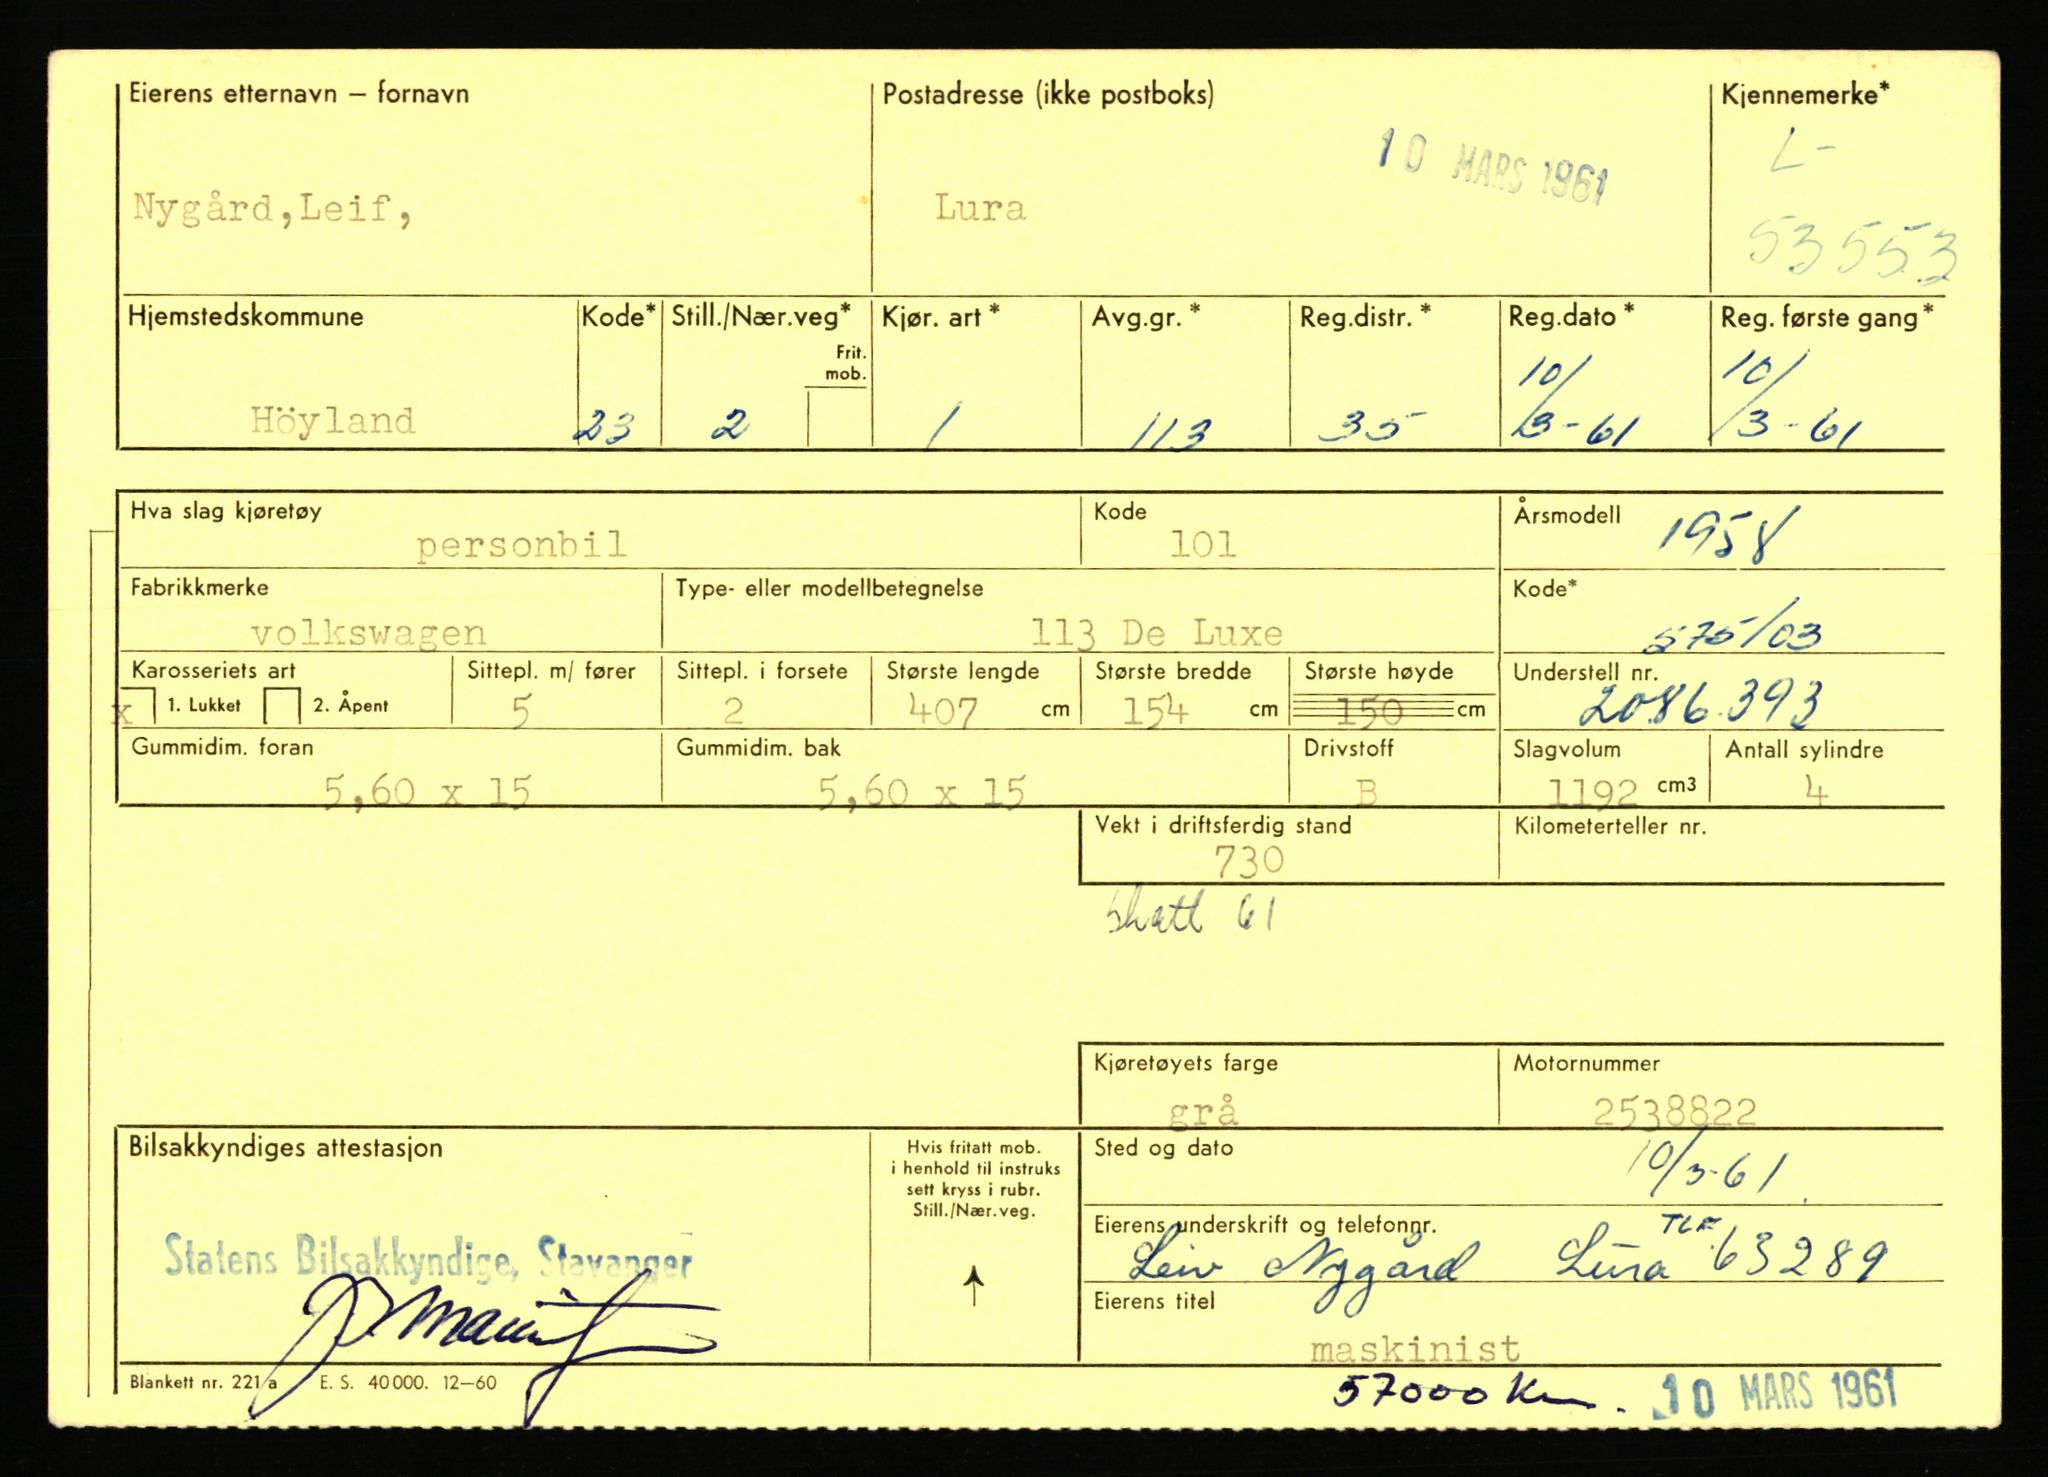 Eierens etternavn – fornavn
Postadresse (ikke postboks)
Kjennemerke*
10 MARS 1961
L-
Nygård,Leif,
Lura
53553
Hjemstedskommune
Kode*
Still./Nær.veg*
Kjør. art*
Avg.gr.*
Reg.distr.*
Reg.dato*
Reg. første gang*
Frit.
mob.
Höyland
23
2
1
113
35
10/3-61
10/3-61
Hva slag kjøretøy
personbil
Kode
101
Årsmodell
1958
Fabrikkmerke
volkswagen
Type- eller modellbetegnelse
113 De Luxe
Kode*
575/03
Karosseriets art
x 1. Lukket 2. Åpent
Sittepl. m/ fører
5
Sittepl. i forsete
2
Største lengde
407 cm
Største bredde
154 cm
Største høyde
150 cm
Understell nr.
2086.393
Gummidim. foran
5,60 x 15
Gummidim. bak
5,60 x 15
Drivstoff
B
Slagvolum
1192 cm3
Antall sylindre
4
Vekt i driftsferdig stand
730
Kilometerteller nr.
skatt 61
Kjøretøyets farge
grå
Motornummer
2538822
Bilsakkyndiges attestasjon
Hvis fritatt mob.
i henhold til instruks
sett kryss i rubr.
Still./Nær.veg.
Sted og dato
10/3-61
Statens Bilsakkyndige, Stavanger
Eierens underskrift og telefonnr.
Leiv Nygård Lura TLF. 63289
Eierens titel
maskinist
Blankett nr. 221 a E. S. 40 000. 12–60
57000 Km.
10 MARS 1961